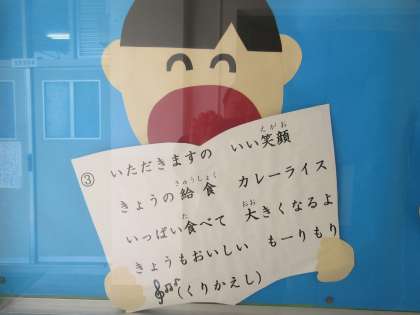 ③ いただきますの いい笑顔
えがお
きょうの給食 カレーライス
きゅうしょく
いっぱい食べて 大きくなるよ
た おお
きょうもおいしい もーりもり
(くりかえし)